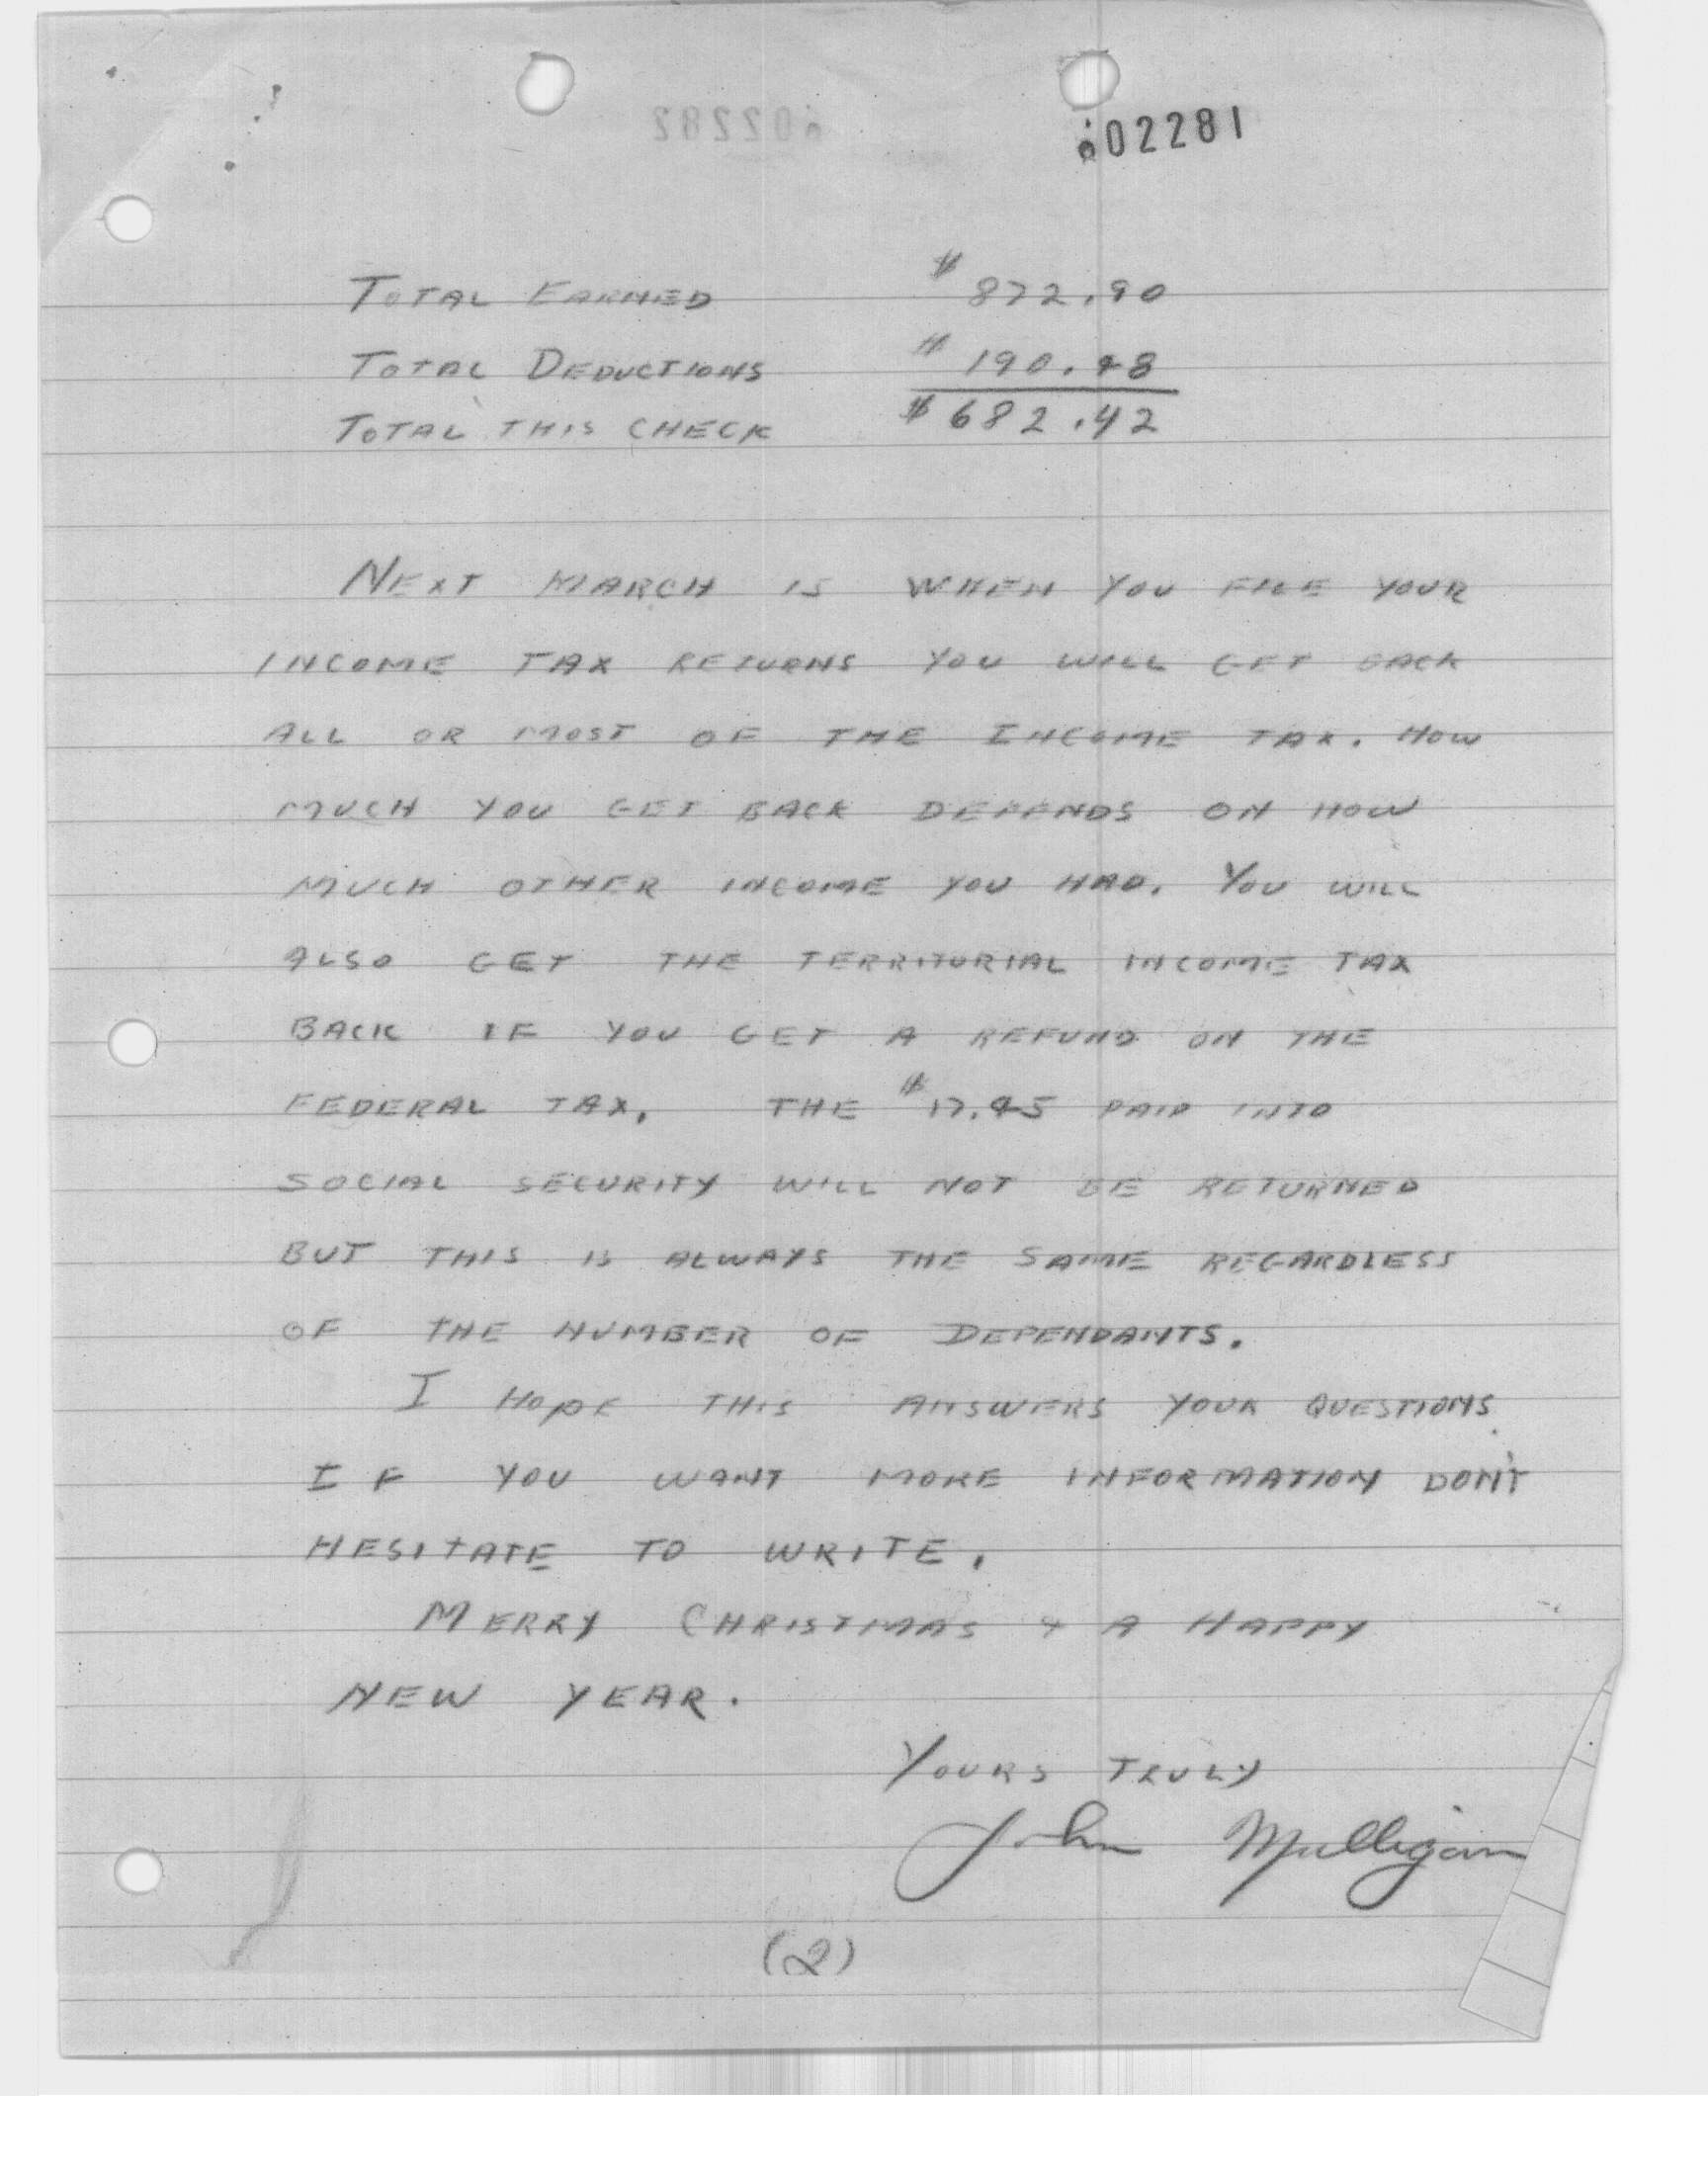 002281
002282
TOTAL EARNED $ 872.90
TOTAL DEDUCTIONS $ 190.48
TOTAL THIS CHECK $ 682.42
NEXT MARCH IS WHEN YOU FILE YOUR
INCOME TAX RETURNS YOU WILL GET BACK
ALL OR MOST OF THE INCOME TAX. HOW
MUCH YOU GET BACK DEPENDS ON HOW
MUCH OTHER INCOME YOU HAD. YOU WILL
ALSO GET THE TERRITORIAL INCOME TAX
BACK IF YOU GET A REFUND ON THE
FEDERAL TAX. THE $17.45 PAID INTO
SOCIAL SECURITY WILL NOT BE RETURNED
BUT THIS IS ALWAYS THE SAME REGARDLESS
OF THE NUMBER OF DEPENDANTS.
I HOPE THIS ANSWERS YOUR QUESTIONS.
IF YOU WANT MORE INFORMATION DON'T
HESITATE TO WRITE.
MERRY CHRISTMAS + A HAPPY
NEW YEAR.
YOURS TRULY
John Mulligan
(2)